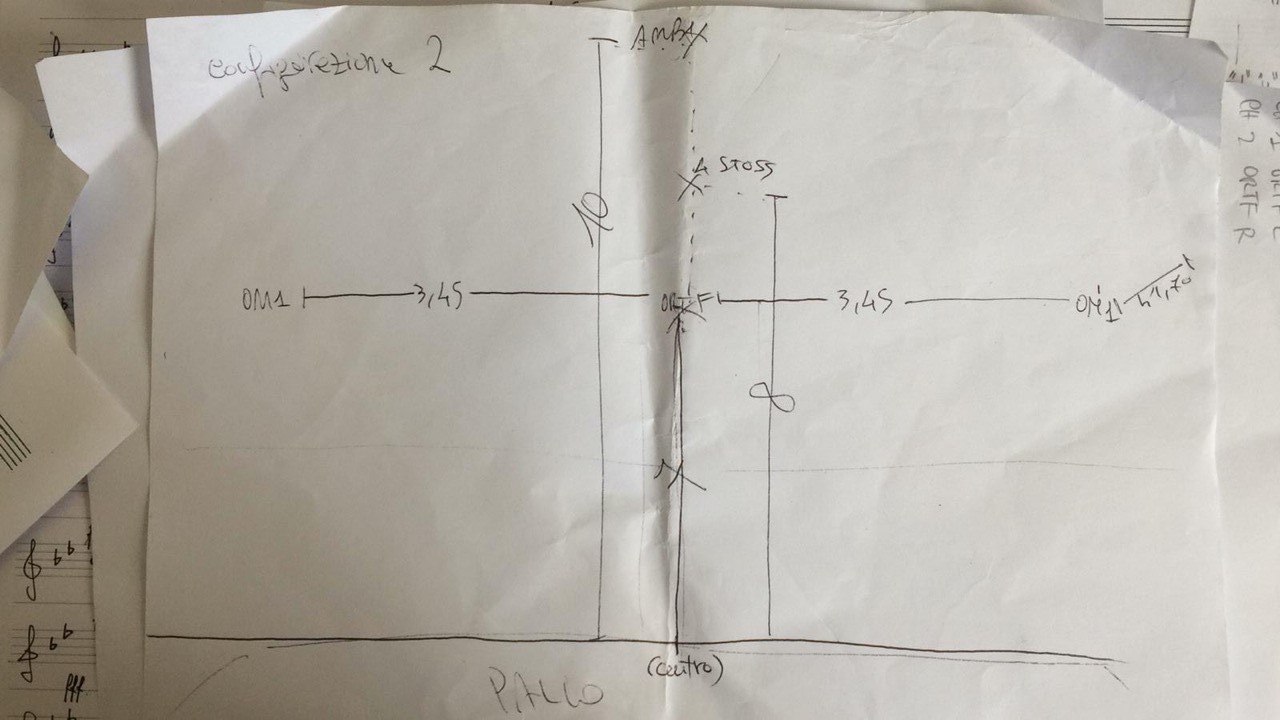 configurazione 2
AMBX
4 STOSS
10
OM1
3,45
ORTF
3,45
OM1
h1,70
8
(centro)
PALCO
PH 2 ORTF R
fff